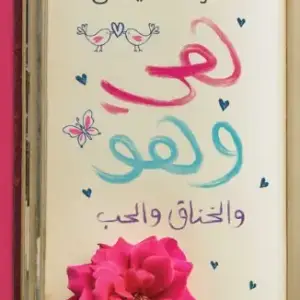 هي
وهو
والخناق والحب